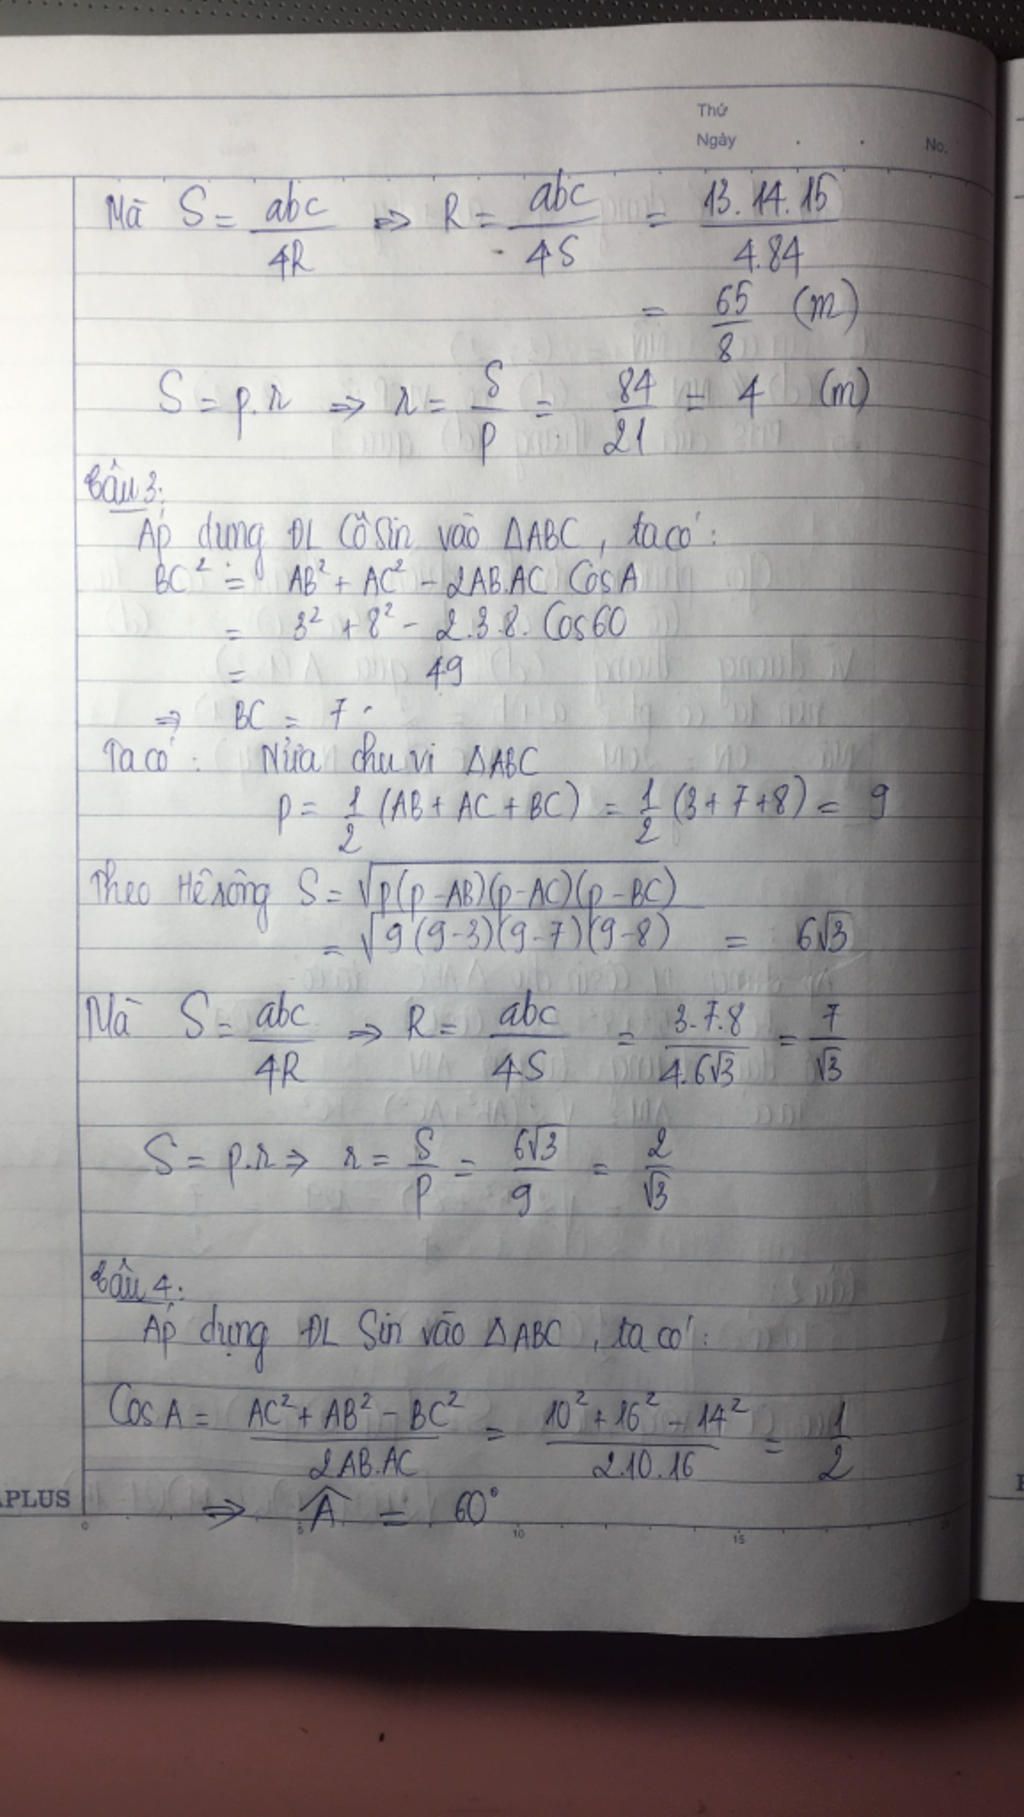 Thứ
Ngày . . No.
Mà S = abc/4R ⇒ R = abc/4S = 13.14.15/4.84
= 65/8 (m)
S = p.r ⇒ r = S/p = 84/21 = 4 (m)
Câu 3:
Áp dụng ĐL Côsin vào △ABC, ta có:
BC² = AB² + AC² - 2AB.AC CosA
= 3² + 8² - 2.3.8. Cos60
= 49
⇒ BC = 7.
Ta có: Nửa chu vi △ABC
p = 1/2 (AB + AC + BC) = 1/2 (3+7+8) = 9
Theo Hêrông S = √p(p-AB)(p-AC)(p-BC)
= √9(9-3)(9-7)(9-8) = 6√3
Mà S = abc/4R ⇒ R = abc/4S = 3.7.8/4.6√3 = 7/√3
S = p.r ⇒ r = S/p = 6√3/9 = 2/√3
Câu 4:
Áp dụng ĐL Sin vào △ABC, ta có:
Cos A = AC² + AB² - BC²/2AB.AC = 10² + 16² - 14²/2.10.16 = 1/2
APLUS
⇒ Â = 60°
0 5 10 15